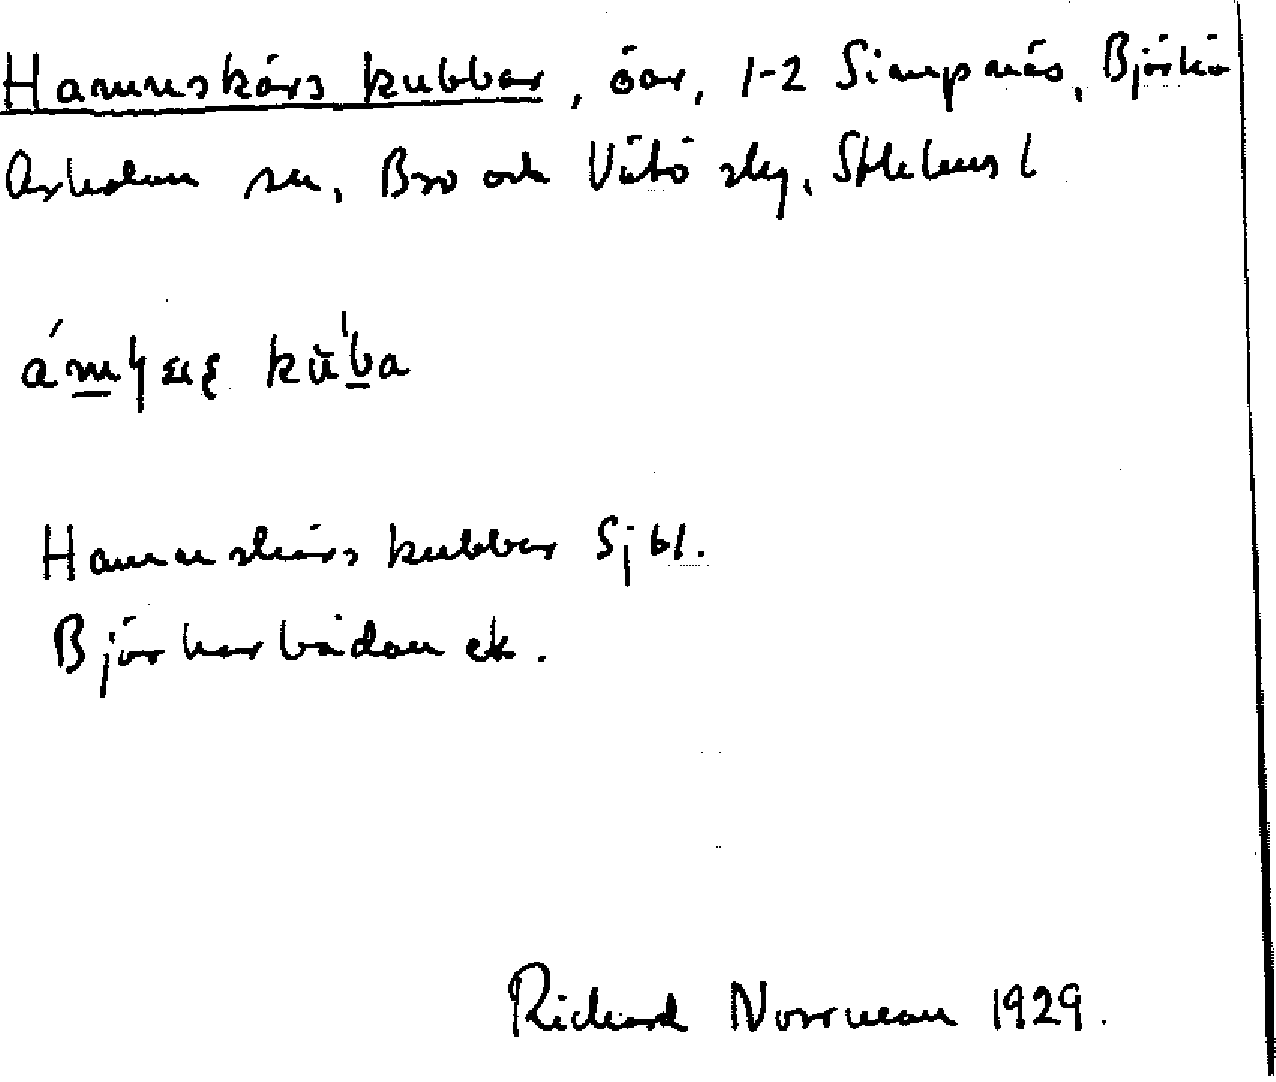 Hamnskärs kubbar, öar, 1-2 Simpnäs, Björkö
Arholma sn, Bro och Vätö slg, Sthlms l
Hamnskärs kubbar Sjbl.
Björkarbådan ek.
Richard Norrman 1929.